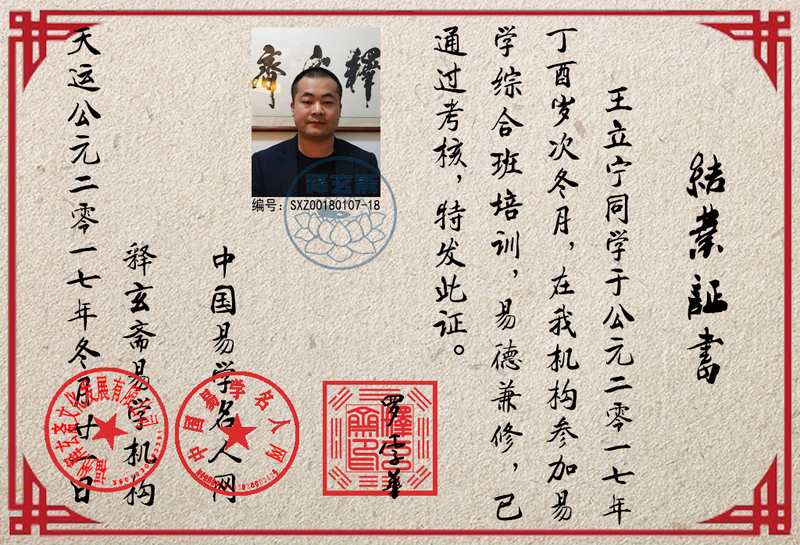 結業証書
王立宁同学于公元二零一七年
丁酉岁次冬月，在我机构参加易
学综合班培训，易德兼修，已
通过考核，特发此证。
釋玄齋
编号：SXZ00180107-18
释玄斋
罗雲華
中国易学名人网
中国易学名人网
释玄斋易学机构
天运公元二零一七年冬月廿一日